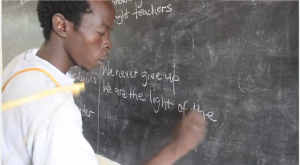 ght teachers
We never give up
We are the light of the